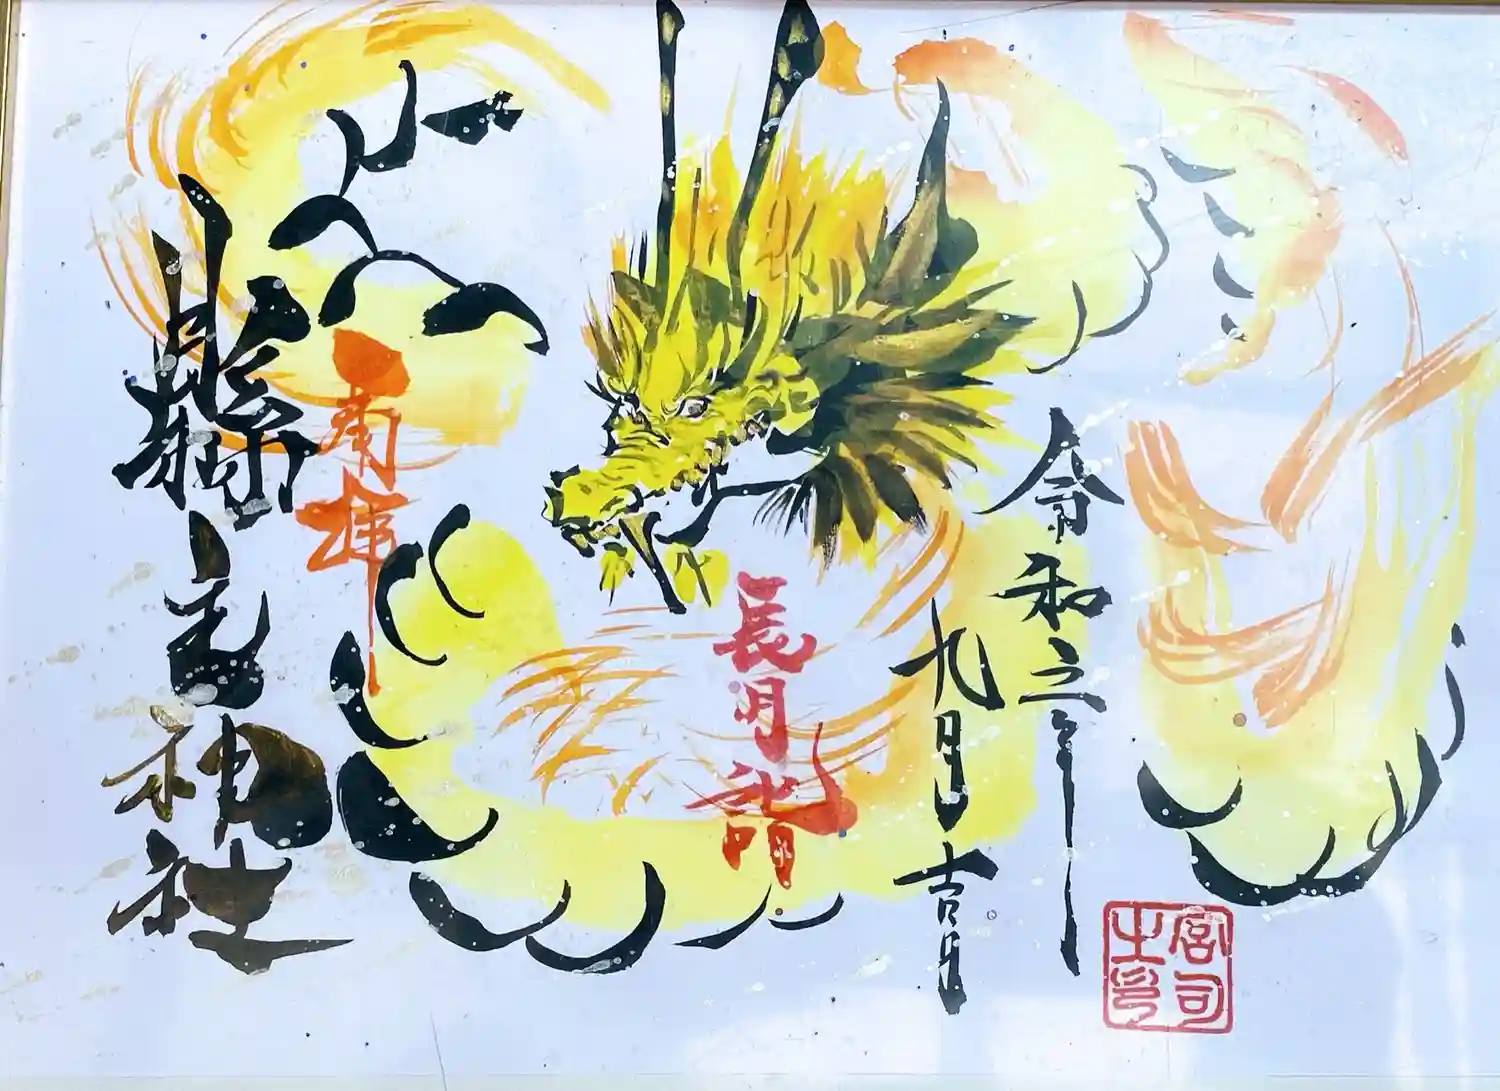 令和三年
九月吉日
長月詣
奉拝
縣主神社
宮司
之印